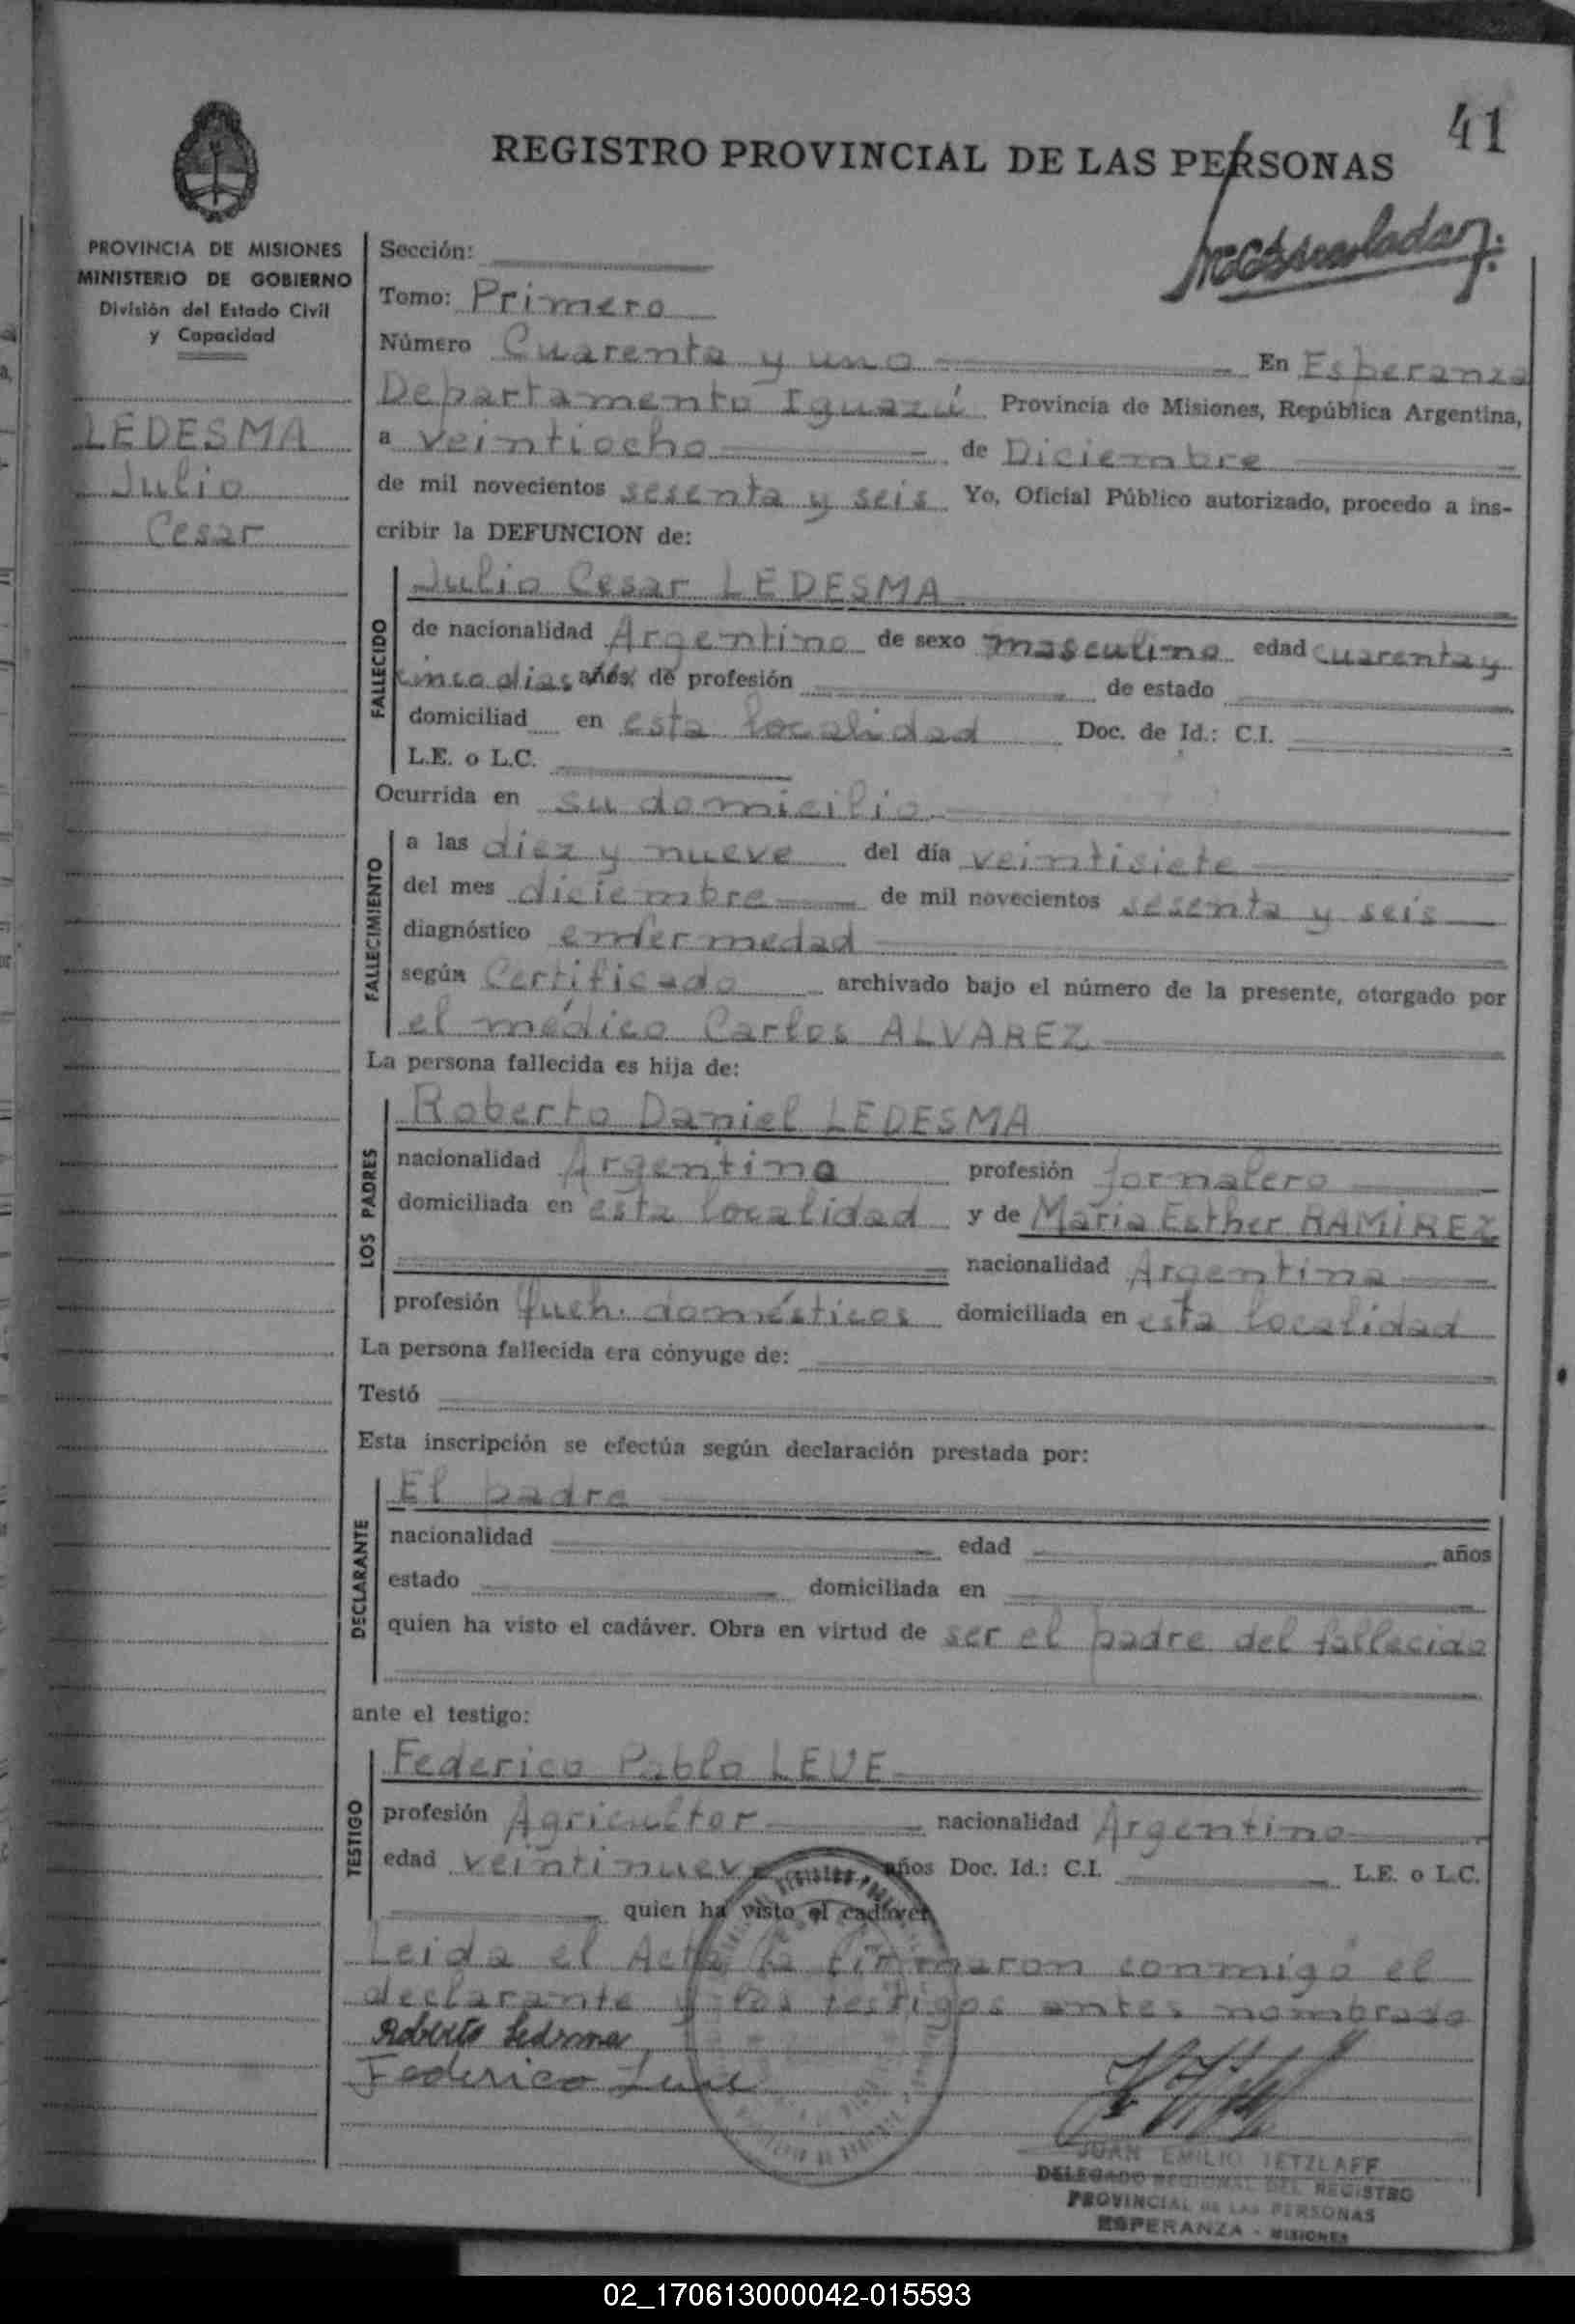 41
REGISTRO PROVINCIAL DE LAS PERSONAS
PROVINCIA DE MISIONES
MINISTERIO DE GOBIERNO
División del Estado Civil
y Capacidad
LEDESMA
Julio
Cesar
Sección:
Tomo: Primero
Número Cuarenta y uno En Esperanza
Departamento Iguazú Provincia de Misiones, República Argentina,
a veintiocho de Diciembre
de mil novecientos sesenta y seis Yo, Oficial Público autorizado, procedo a ins-
cribir la DEFUNCION de:
FALLECIDO
Julio Cesar LEDESMA
de nacionalidad Argentino de sexo masculino edad cuarenta y
cinco dias años de profesión de estado
domiciliad en esta localidad Doc. de Id.: C.I.
L.E. o L.C.
Ocurrida en su domicilio
FALLECIMIENTO
a las diez y nueve del día veintisiete
del mes diciembre de mil novecientos sesenta y seis
diagnóstico enfermedad
según Certificado archivado bajo el número de la presente, otorgado por
el médico Carlos ALVAREZ
La persona fallecida es hija de:
LOS PADRES
Roberto Daniel LEDESMA
nacionalidad Argentina profesión Jornalero
domiciliada en esta localidad y de Maria Esther RAMIREZ
nacionalidad Argentina
profesión Queh. domésticos domiciliada en esta localidad
La persona fallecida era cónyuge de:
Testó
Esta inscripción se efectúa según declaración prestada por:
DECLARANTE
El padre
nacionalidad edad años
estado domiciliada en
quien ha visto el cadáver. Obra en virtud de ser el padre del fallecido
ante el testigo:
TESTIGO
Federico Pablo LEVE
profesión Agricultor nacionalidad Argentino
edad veintinueve años Doc. Id.: C.I. L.E. o L.C.
quien ha visto el cadáver
Leida el Acta la firmaron conmigo el
declarante y los testigos antes nombrado
Roberto Ledesma
Federico Leve
JUAN EMILIO TETZLAFF
DELEGADO REGIONAL DEL REGISTRO
PROVINCIAL DE LAS PERSONAS
ESPERANZA - MISIONES
02_170613000042-015593